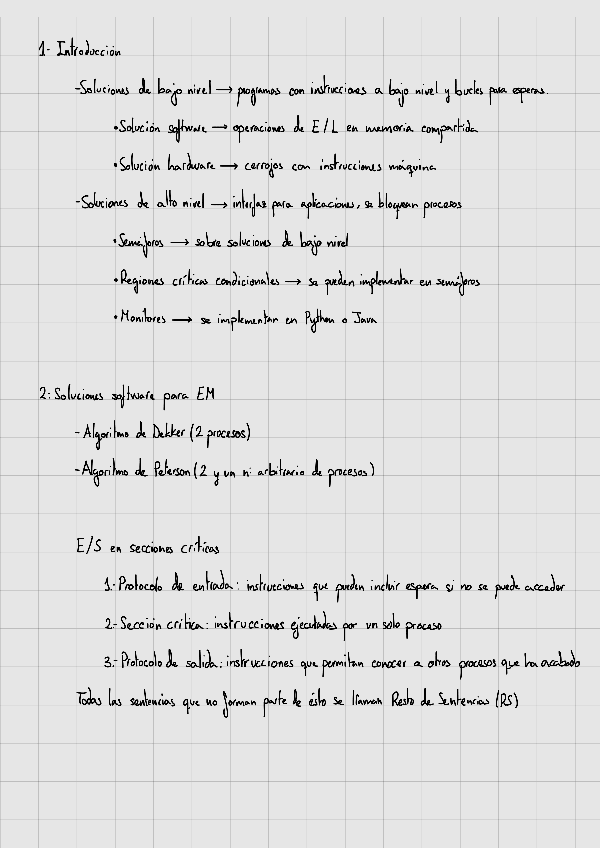 1- Introducción
-Soluciones de bajo nivel → programas con instrucciones a bajo nivel y bucles para esperas.
•Solución software → operaciones de E/L en memoria compartida
•Solución hardware → cerrojos con instrucciones máquina
-Soluciones de alto nivel → interfaz para aplicaciones, se bloquean procesos
•Semáforos → sobre soluciones de bajo nivel
•Regiones críticas condicionales → se pueden implementar en semáforos
•Monitores → se implementar en Python o Java
2: Soluciones software para EM
-Algoritmo de Dekker (2 procesos)
-Algoritmo de Peterson (2 y un nº arbitrario de procesos)
E/S en secciones críticas
1.-Protocolo de entrada: instrucciones que pueden incluir espera si no se puede acceder
2.-Sección crítica: instrucciones ejecutadas por un solo proceso
3.-Protocolo de salida: instrucciones que permitan conocer a otros procesos que ha acabado
Todas las sentencias que no forman parte de ésto se llaman Resto de Sentencias (RS)